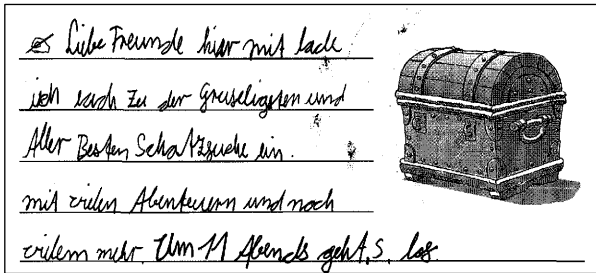 Liebe Freunde hier mit lade
ich euch zu der Gruseligsten und
Aller Besten Schatzsuche ein.
mit vielen Abenteuern und noch
vielem mehr. Um 11 Abends geht,s los